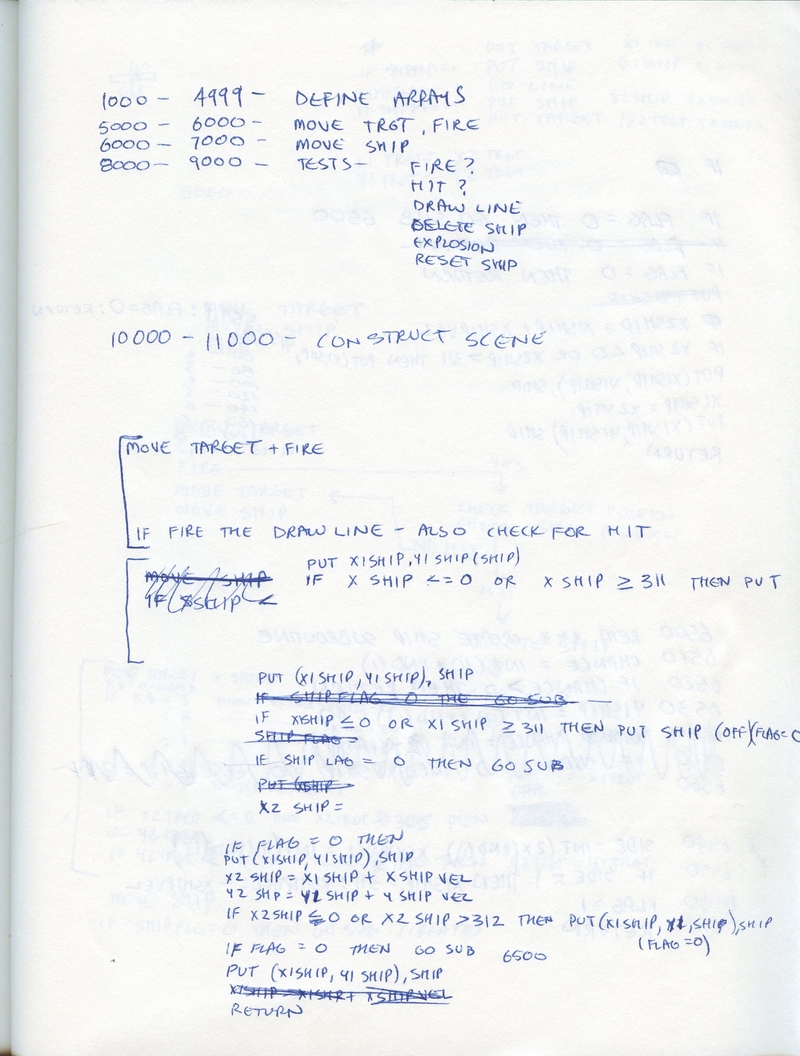 1000 - 4999 - DEFINE ARRAYS
5000 - 6000 - MOVE TRGT, FIRE
6000 - 7000 - MOVE SHIP
8000 - 9000 - TESTS - FIRE?
HIT?
DRAW LINE
DELETE SHIP
EXPLOSION
RESET SHIP
10000 - 11000 - CONSTRUCT SCENE
MOVE TARGET + FIRE
IF FIRE THE DRAW LINE - ALSO CHECK FOR HIT
PUT X1SHIP, Y1SHIP (SHIP)
MOVE SHIP
IF X SHIP <=0 OR X SHIP ≥ 311 THEN PUT
IF XSHIP <
PUT (X1SHIP, Y1SHIP), SHIP
IF SHIP FLAG = 0 THE GO SUB
IF XSHIP ≤ 0 OR X1SHIP ≥ 311 THEN PUT SHIP (OFF)(FLAG=0
SHIP FLAG =
IF SHIP LAG = 0 THEN GO SUB
PUT (XSHIP
X2 SHIP =
IF FLAG = 0 THEN
PUT (X1SHIP, Y1SHIP), SHIP
X2 SHIP = X1SHIP + XSHIP VEL
Y2 SHP = Y1 SHIP + Y SHIP VEL
IF X2SHIP ≤ 0 OR X2 SHIP > 312 THEN PUT (X1SHIP, Y1, SHIP), SHIP
(FLAG = 0)
IF FLAG = 0 THEN GO SUB 6500
PUT (X1SHIP, Y1 SHIP), SHIP
X1SHIP = X1SHIP + XSHIPVEL
RETURN